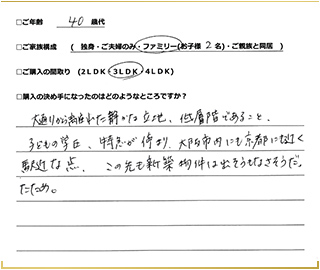 □ご年齢 40 歳代
□ご家族構成 ( 独身・ご夫婦のみ・ファミリー(お子様 2名)・ご親族と同居 )
□ご購入の間取り (2LDK・3LDK・4LDK)
□購入の決め手になったのはどのようなところですか?
大通りから離れた静かな立地、低層階であること、
子どもの学区、特急が停まり、大阪市内にも京都にも近く
駅近な点、この先も新築物件は出そうもなさそうだっ
たため。